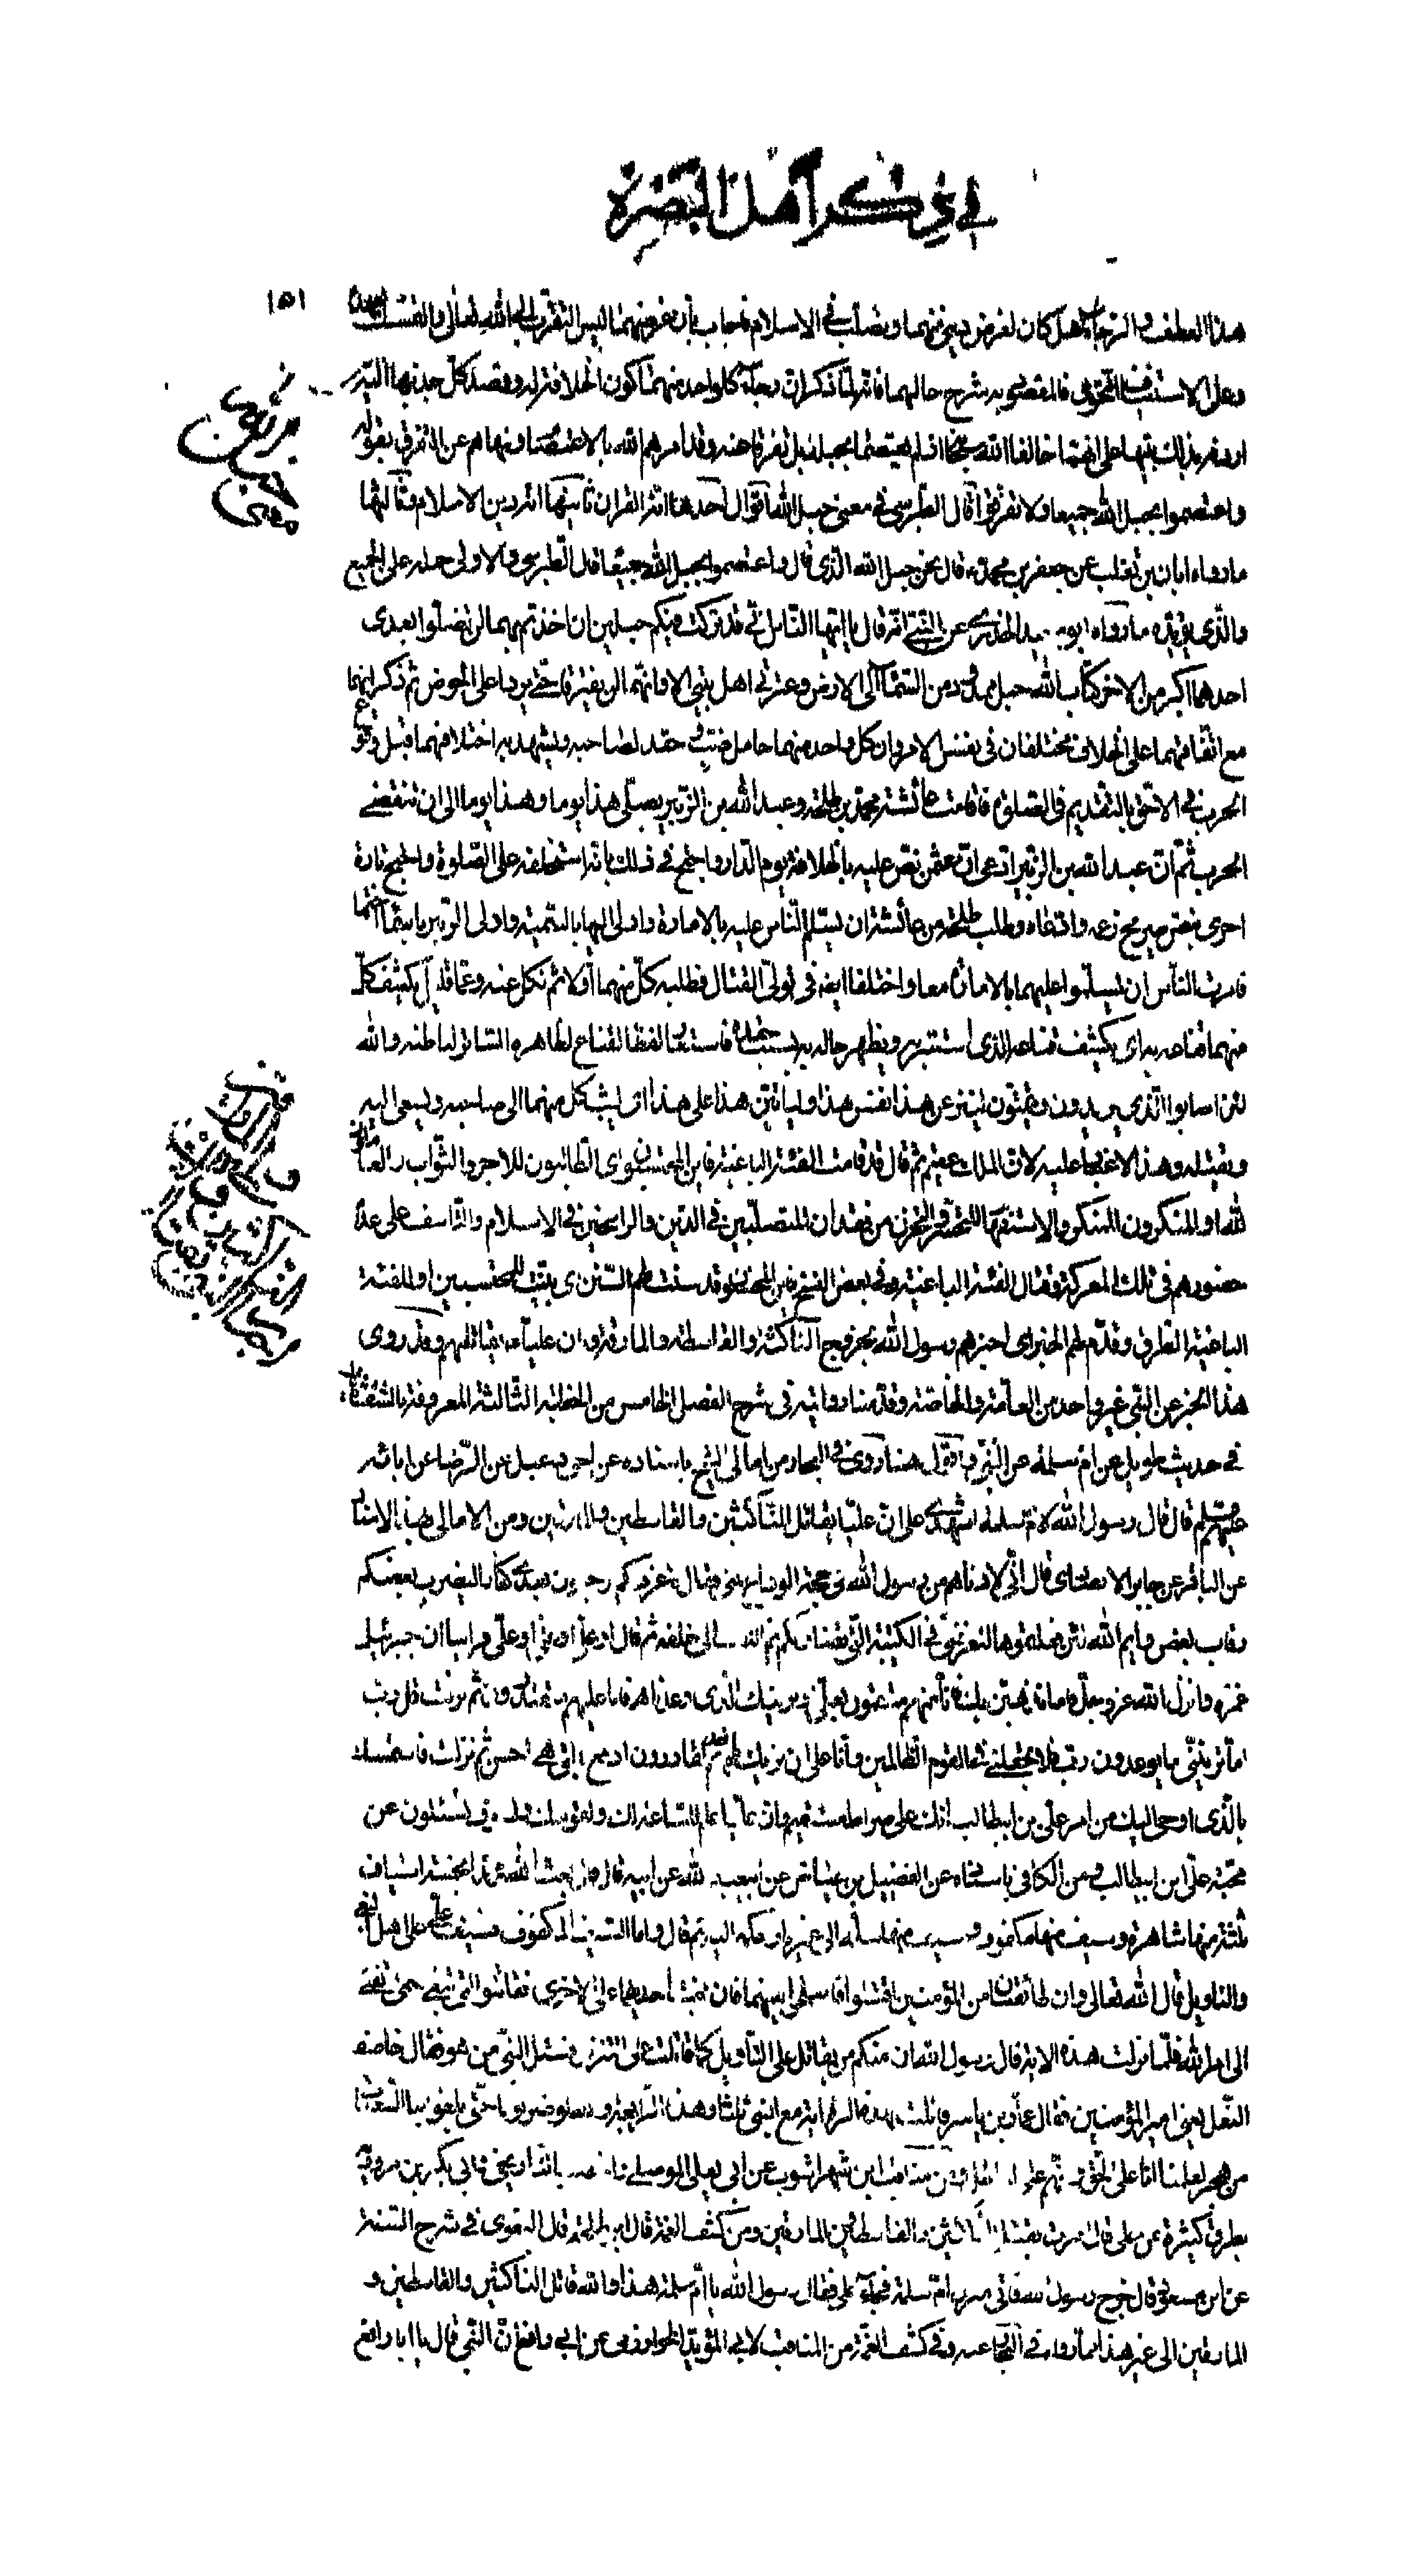 في ذكر اهل البصرة
١٥١
هذا العطف و الرجاء هل كان لغرض ديني منهما و تصلب في الاسلام فاجاب بأن غرضهما ليس التقرب الى الله تعالى والتمسك
وعلى الاستيناف النحوي فالمقصود به شرح حالهما فانه لما ذكر ان رجاء كل واحد منهما كون الخلافة له و قصد كل جذبها اليه
اردفه بذلك تنبيها على انهما خالفا الله سبحانه فلم يعتصما بحبله بل تفرقا عنه وقد امرهم الله بالاعتصام ونهاهم عن التفرق بقوله
واعتصموا بحبل الله جميعا ولا تفرقوا قال الطبرسي في معنى حبل الله اقوال احدها انه القران ثانيها انه دين الاسلام وثالثها
ما رواه ابان بن تغلب عن جعفر بن محمد قال نحن حبل الله الذي قال واعتصموا بحبل الله جميعا قال الطبرسي والاولى حمله على الجميع
والذي يؤيده ما رواه ابو سعيد الخدري عن النبي انه قال يا ايها الناس اني قد تركت فيكم حبلين ان اخذتم بهما لن تضلوا بعدي
احدهما اكبر من الاخر كتاب الله حبل ممدود من السماء الى الارض وعترتي اهل بيتي الا وانهما لن يفترقا حتى يردا على الحوض ثم ذكر انهما
مع اتفاقهما على الخلاف مختلفان في نفس الامر وان كل واحد منهما حامل ضب و حقد لصاحبه ويشهد به اختلافهما قبل وقوع
الحرب في الاحق بالتقديم في الصلوة فاقامت عائشة محمد بن طلحة وعبد الله بن الزبير يصلى هذا يوما وهذا يوما الى ان تنقضي
الحرب ثم ان عبد الله بن الزبير ادعى ان عثمن نص عليه بالخلافة يوم الدار واحتج في ذلك بانه استخلفه على الصلوة واحتج تارة
اخرى بنص صريح زعمه وادعاه وطلب طلحة من عائشة ان يسلم الناس عليه بالامارة وادلى اليها بالتسمية وادلى الزبير باسماء اختها
فامرت الناس ان يسلموا عليهما بالامارة معا واختلفا ايضا في تولى القتال فطلبه كل منهما اولا ثم نكل عنه وعما قليل يكشف كل
منهما قناعه به اى يكشف قناعه الذي استتر به ويظهر حاله بسبب حقده فاستعار لفظ القناع لظاهره الساتر لباطنه والله
لئن اصابوا الذي يريدون ويتمنون لينتزعن هذا نفس هذا ولياتين هذا على هذا اى ليثب كل منهما الى صاحبه ويسعى اليه
ويقتله وهذا لا غبار عليه لان الملك عقيم ثم قال قد قامت الفئة الباغية فاين المحتسبون اى الطالبون للاجر والثواب والعاملون
لله او المنكرون للمنكر والاستفهام للتحسر والتحزن من فقدان المتصلبين في الدين والراسخين في الاسلام والتاسف على عدم
حضورهم في تلك المعركة وقتال الفئة الباغية وفي بعض النسخ فاين المحتسبون وقد سنت لهم السنن اى بينت للمحتسبين او للفئة
الباغية الطرق وقدم لهم الخبر اى اخبرهم رسول الله بخروج الناكثة والقاسطة والمارقة وان عليا يقاتلهم وقد روى
هذا الخبر عن النبي غير واحد من العامة والخاصة وقدمنا روايته في شرح الفصل الخامس من الخطبة الثالثة المعروفة بالشقشقية
في حديث طويل عن ام سلمة عن النبي واقول هنا روى في البحار من امالى الشيخ باسناده عن اخي دعبل عن الرضا عن ابائه
عليهم السلم قال قال رسول الله لام سلمة اشهدي على ان عليا يقاتل الناكثين والقاسطين والمارقين ومن الامالى بهذا الاسناد
عن الباقر عن جابر الانصاري قال اني لادناهم من رسول الله في حجة الوداع بمنى فقال لاعرفنكم ترجعون بعدي كفارا يضرب بعضكم
رقاب بعض وايم الله لئن فعلتموها لتعرفني في الكتيبة التي تضاربكم ثم التفت الى خلفه ثم قال او على او على او على فراينا ان جبرئيل
غمزه وانزل الله عز وجل فاما نذهبن بك فانا منهم منتقمون بعلى او نرينك الذي وعدناهم فانا عليهم مقتدرون ثم نزلت قل رب
اما ترينى ما يوعدون رب فلا تجعلني في القوم الظالمين وانا على ان نريك ما نعدهم لقادرون ادفع بالتي هي احسن ثم نزلت فاستمسك
بالذى اوحى اليك من امر على بن ابيطالب انك على صراط مستقيم وان عليا لعلم للساعة لك ولقومك وسوف تسئلون عن
محبة على ابن ابيطالب ومن الكافى باسناده عن الفضيل بن عياض عن ابيعبد الله عن ابيه قال قال بعث الله محمدا بخمسة اسياف
ثلثة منها شاهرة وسيف منها مكفوف وسيف منها سله الى غيرنا وحكمه الينا ثم قال واما السيف المكفوف فسيف على اهل البغى
والتاويل قال الله تعالى وان طائفتان من المؤمنين اقتتلوا فاصلحوا بينهما فان بغت احديهما على الاخرى فقاتلوا التي تبغي حتى تفئ
الى امر الله فلما نزلت هذه الاية قال رسول الله ان منكم من يقاتل على التأويل كما قاتلت على التنزيل فسئل النبي من هو فقال خاصف
النعل يعنى امير المؤمنين فقال عمار بن ياسر قاتلت بهذه الراية مع النبي ثلثا وهذه الرابعة والله لو ضربونا حتى يبلغوا بنا السعفات
من هجر لعلمنا انا على الحق وانهم على الباطل ومن مناقب ابن شهراشوب عن ابى يعلى الموصلي والخطيب التاريخي وابي بكر بن مردويه
بطرق كثيرة عن على قال امرت بقتال الناكثين والقاسطين والمارقين ومن كشف الغمة قال ابن طلحة قال البغوى في شرح السنة
عن ابن مسعود قال خرج رسول الله فاتى منزل ام سلمة فجاء على فقال رسول الله يا ام سلمة هذا والله قاتل الناكثين والقاسطين و
المارقين الى غير هذا مما رواه في البحار وفي كشف الغمة من المناقب لابى المؤيد الخوارزمى عن ابى رافع ان النبي قال يا ابا رافع